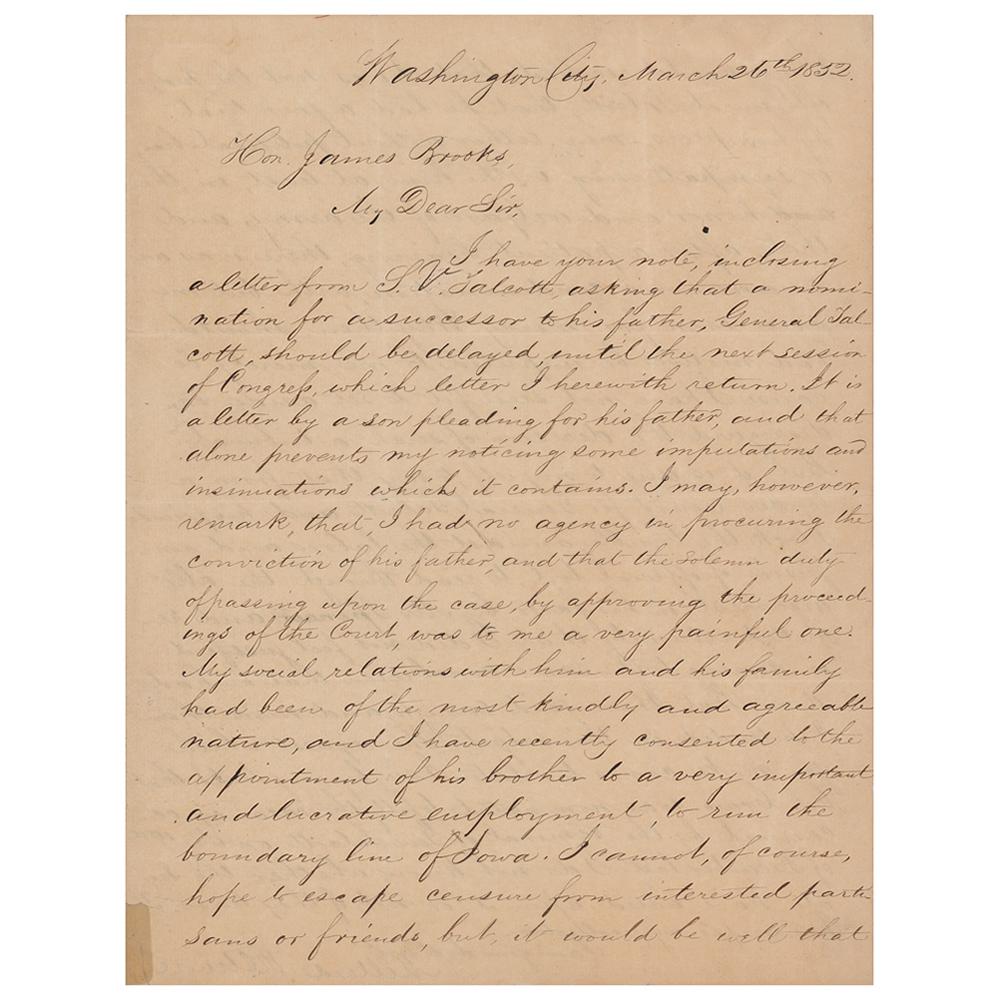 Washington City, March 26th 1852.
Hon. James Brooks,
My Dear Sir,
I have your note, inclosing
a letter from S. V. Talcott, asking that a nomi-
nation for a successor to his father, General Tal-
cott, should be delayed, until the next session
of Congress, which letter I herewith return. It is
a letter by a son pleading for his father, and that
alone prevents my noticing some imputations and
insinuations which it contains. I may, however,
remark, that, I had no agency in procuring the
conviction of his father, and that the solemn duty
of passing upon the case, by approving the proceed-
ings of the Court, was to me a very painful one.
My social relations with him and his family
had been of the most kindly and agreeable
nature, and I have recently consented to the
appointment of his brother to a very important
and lucrative employment, to run the
boundary line of Iowa. I cannot, of course,
hope to escape censure from interested parti
sans or friends, but, it would be well that